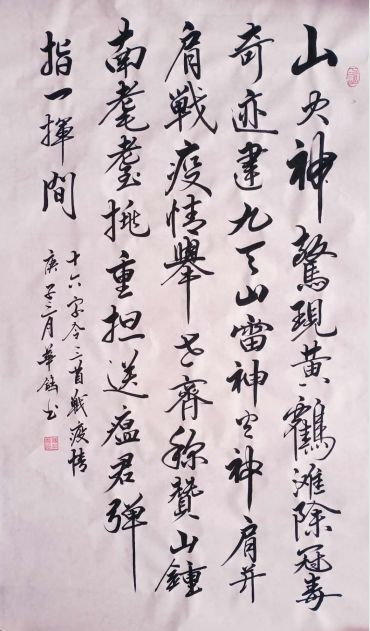 山火神驚現黃鶴灘除冠毒
奇迹建九天山雷神火神肩并
肩戰疫情舉世齊稱贊山鍾
南耄耋挑重担送瘟君彈
指一揮間
十六字令三首戰疫情
庚子三月華书